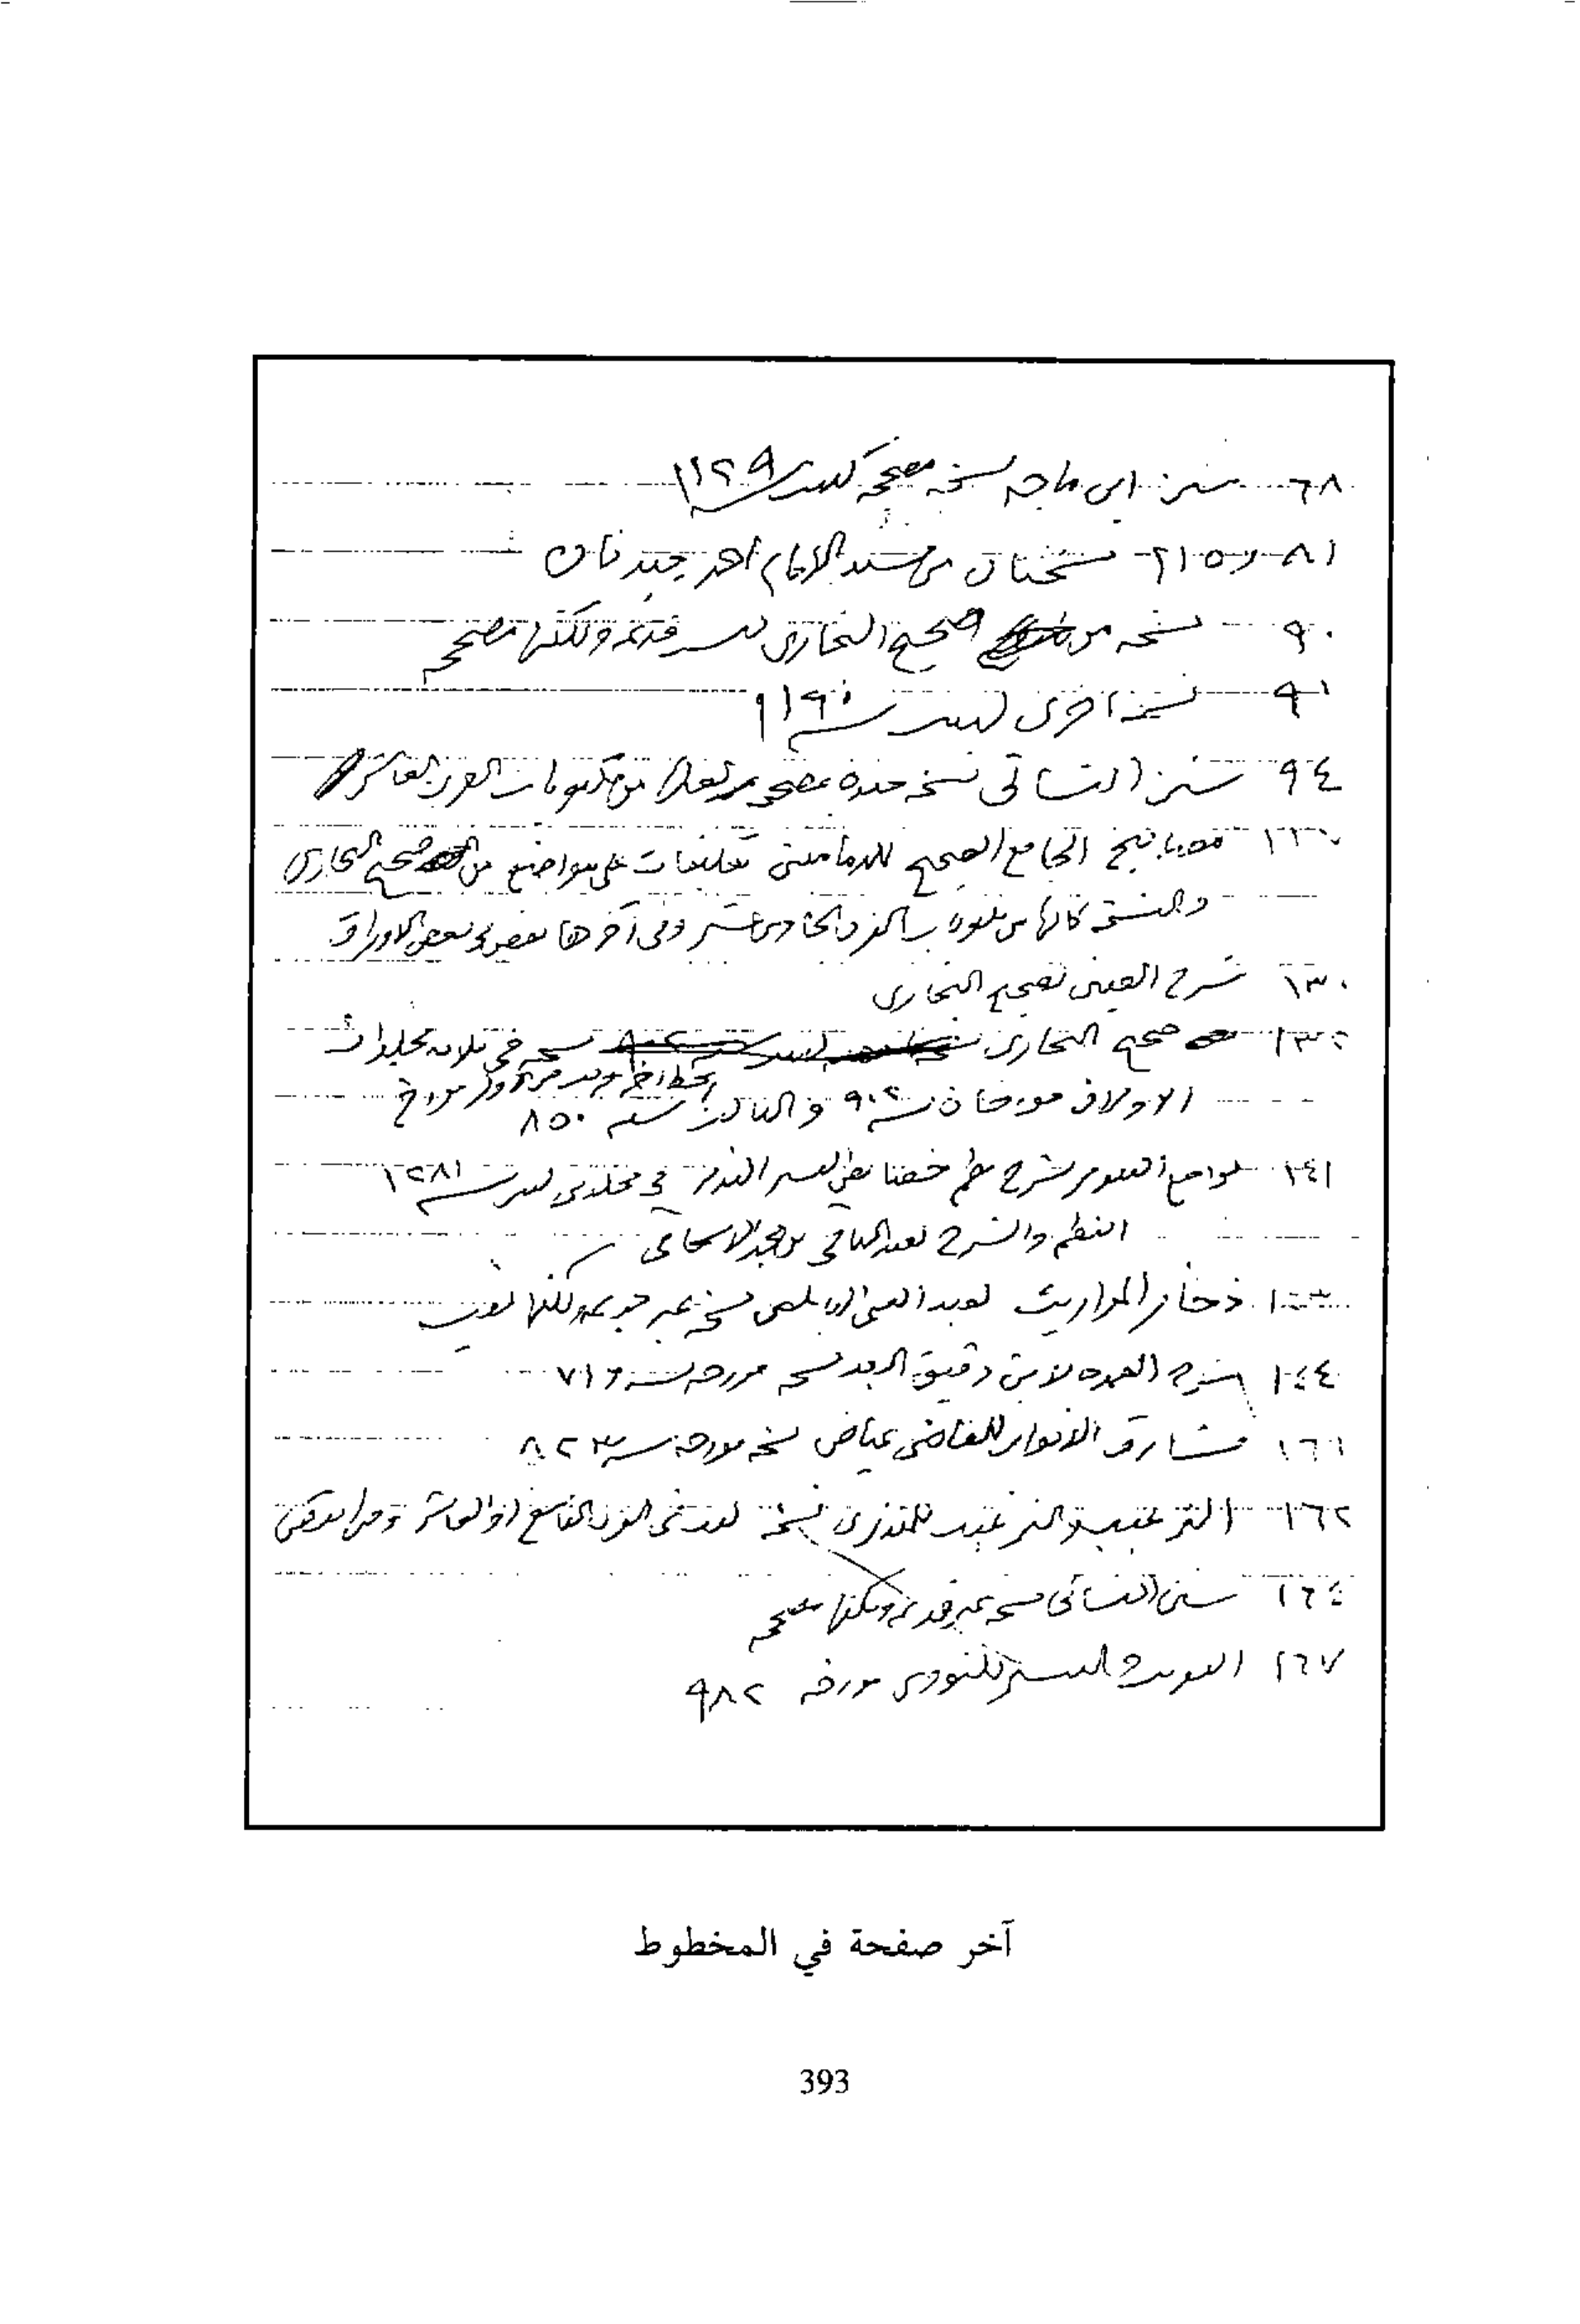 ٦٨ سنن ابن ماجه نسخه مصححه كتبت سنة ١١٢٩
٨١ و ٢١٥ نسختان من مسند الإمام أحمد جيدتان
٩٠ نسخه من صحيح البخاري ليست قديمه ولكنها مصححه
٩١ نسخة أخرى كتبت سنة ١١٩٠
٩٤ سنن النسائي نسخه جيده مصححه من مكتوبات القرن العاشر
مصابيح الجامع الصحيح للدماميني تعليقات على مواضع من صحيح البخاري
والنسخة من القرن الحادي عشر وفي آخرها نقص بعض الأوراق
١٣٠ شرح العيني لصحيح البخاري
١٣٢ صحيح البخاري نسخه في ثلاثة مجلدات
الاولان مورخان سنة ٩٠٢ والثالث مورخ سنه ٨٥٠
١٤١ لوامع شرح نظم خصائص البشير النذير في مجلدين كتبت سنة ١٢٨١
النظم والشرح لعبد الباقي
١٤٣ ذخائر المواريث لعبد الغني النابلسي نسخه غير جيده ولكنها
١٤٤ شرح العمده لابن دقيق العيد نسخه مورخه سنة ٧١٦
١٦١ مشارق الأنوار للقاضي عياض نسخه مورخه سنة ٨٢٣
١٦٢ الترغيب والترهيب للمنذري نسخة القرن التاسع أو العاشر
١٦٤ سنن النسائي نسخه غير قديمه ولكنها مصححه
١٦٧ التقريب والتيسير للنووي مورخه ٩٨٢
آخر صفحة في المخطوط
393